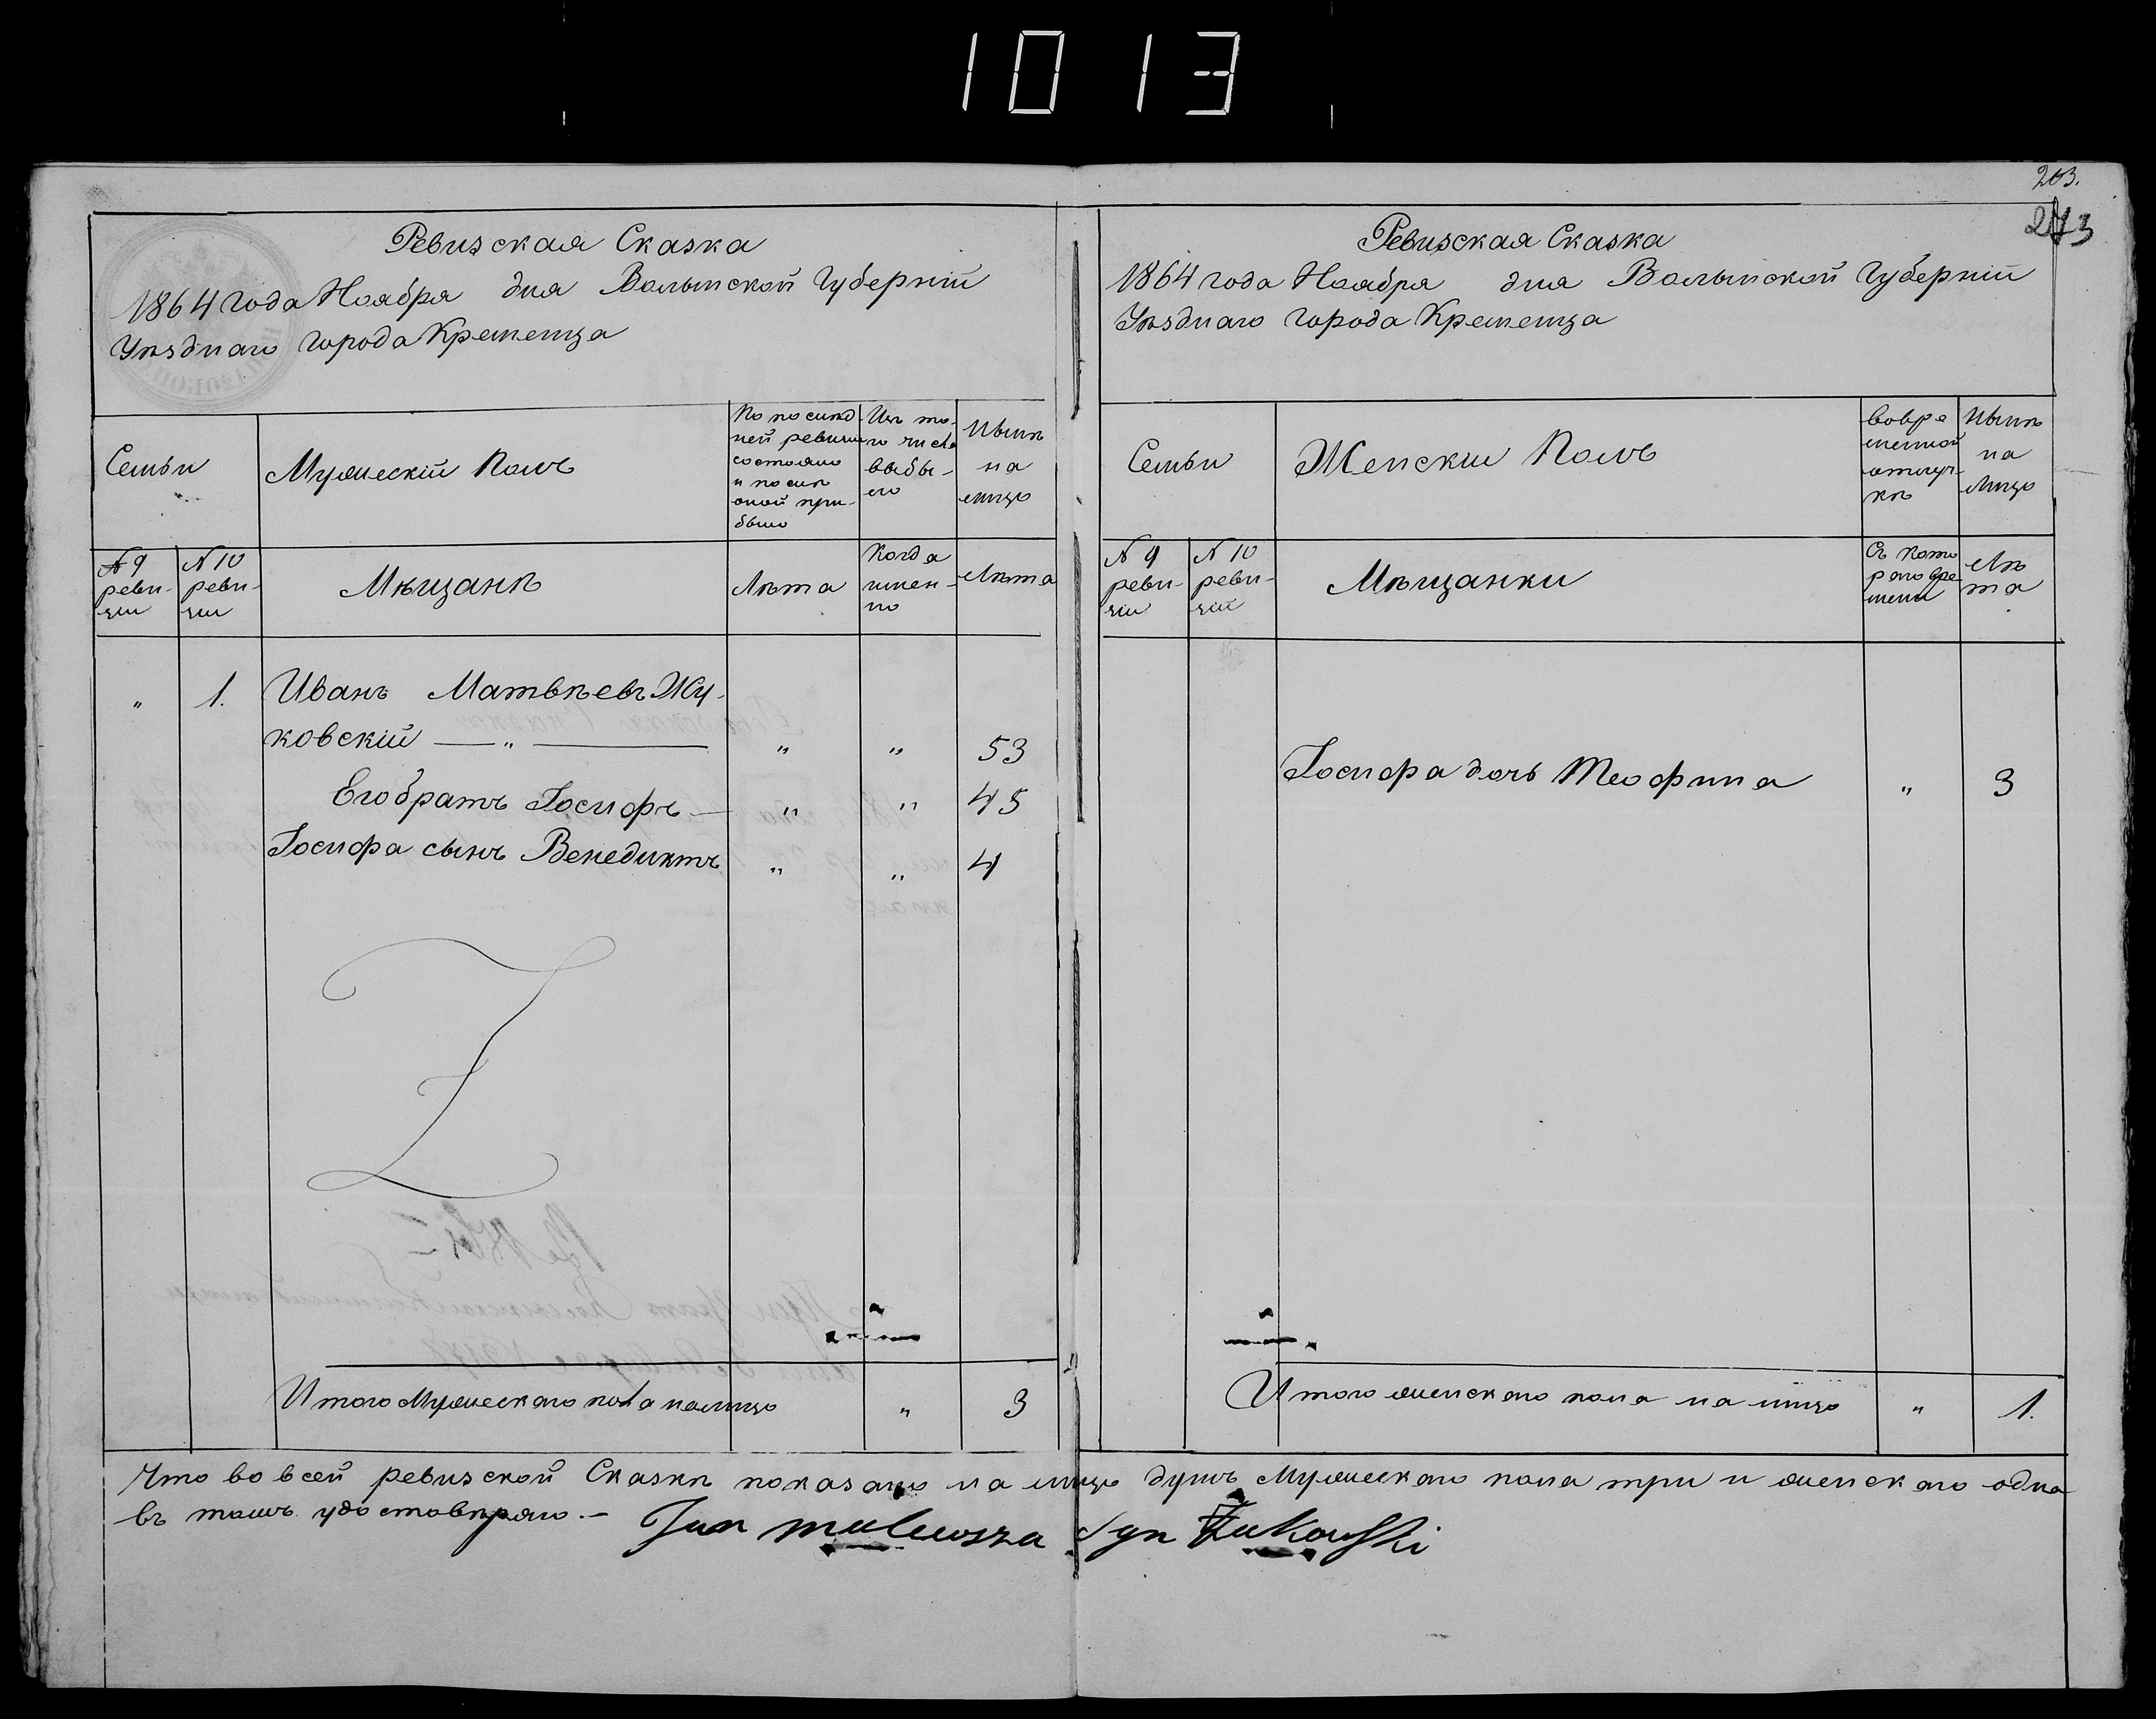 1013
203.
273
Ревизская Сказка
1864 года Ноября дня Волынской Губерніи
Уѣзднаго города Кременца
Семьи
Мужескій Полъ
По послѣд-
ней ревизіи
состояло
и послѣ
оной при-
было
Изъ то-
го числа
выбы-
ло
Нынѣ
на
лицо
№ 9
реви-
зіи
№ 10
реви-
зіи
Мѣщанѣ
Лѣта
Когда
имен-
но
Лѣта
„ 1. Иванъ Матвѣевъ Жу-
ковскій — „ — „ „ 53
Его братъ Іосифъ — „ „ 45
Іосифа сынъ Венедиктъ „ „ 4
Итого Мужескаго пола налицо „ 3
Ревизская Сказка
1864 года Ноября дня Волынской Губерніи
Уѣзднаго города Кременца
Семьи
Женскій Полъ
во вре
менной
отлуч-
кѣ
Нынѣ
на
Лицо
№ 9
реви-
зіи
№ 10
реви-
зіи
Мѣщанки
Съ кото
раго вре
мени
Лѣ
та
Іосифа дочь Теофина „ 3
Итого женскаго пола на лицо „ 1.
Что во всей ревизской Сказкѣ показано на лицо душъ Мужескаго пола три и женскаго одна
въ томъ удостовѣряю. – Jan Mateusza Syn Żukowski